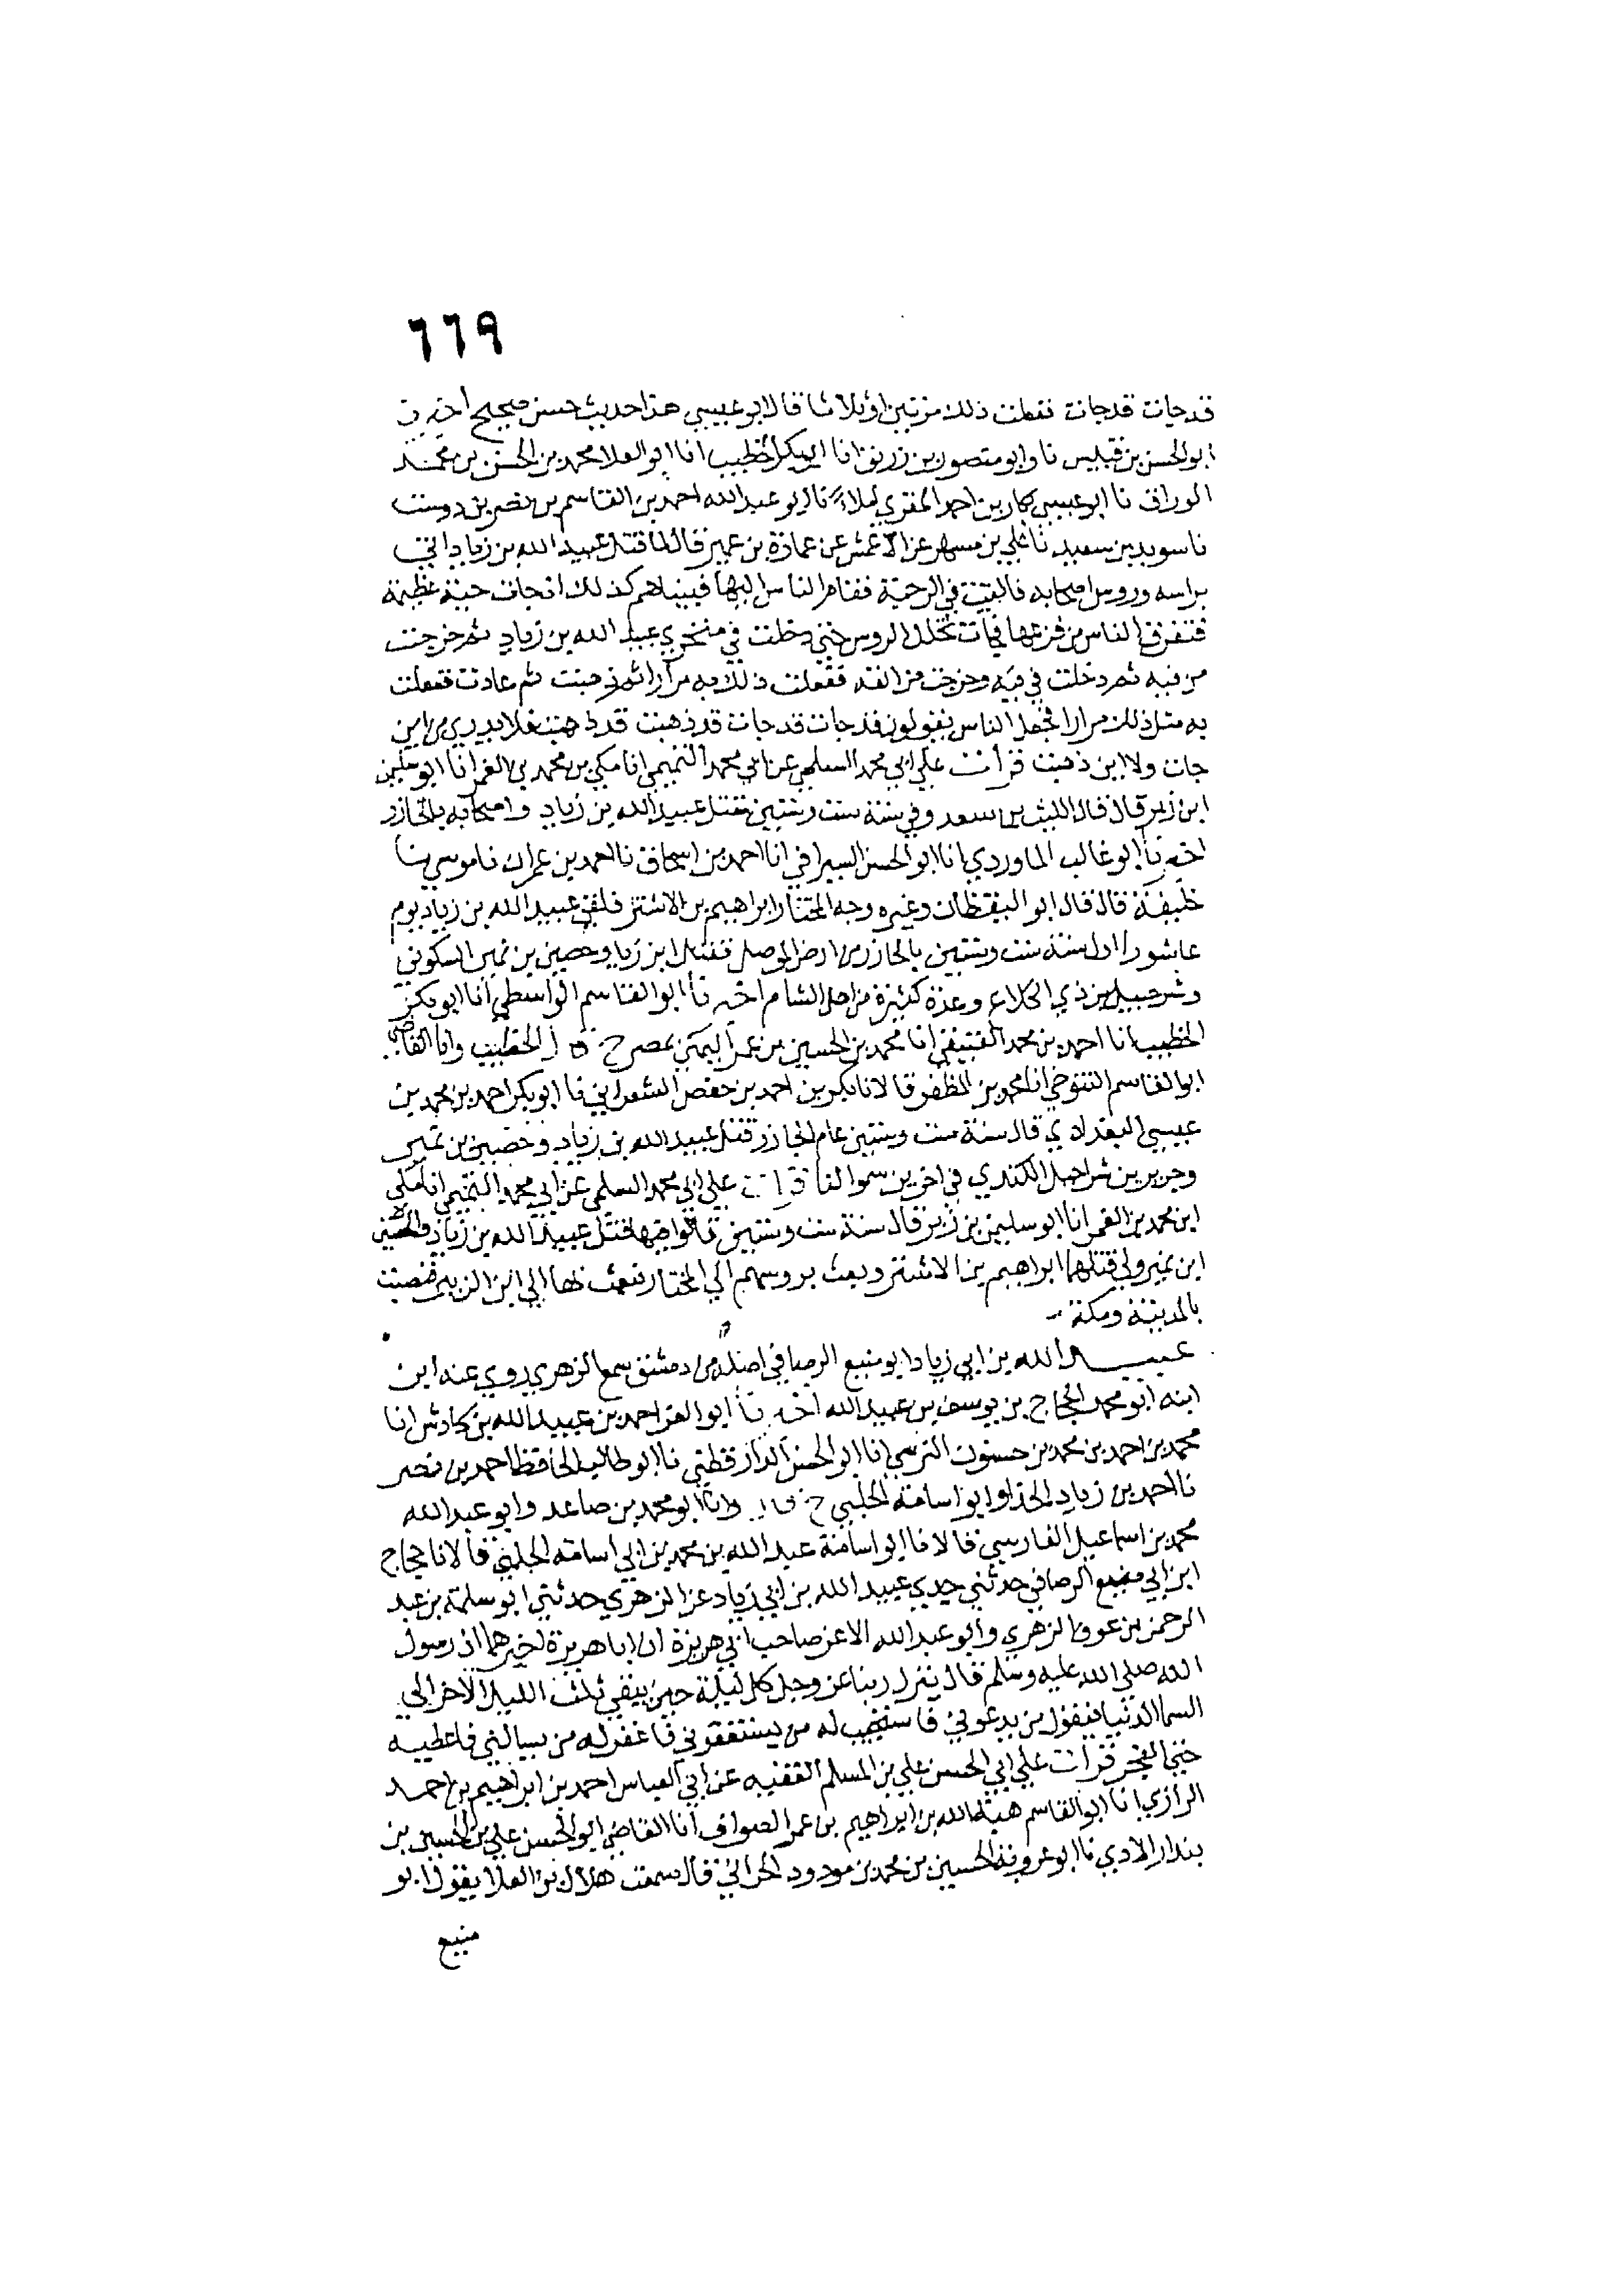 ٦٦٩
قد جات قد جات ففعلت ذلك مرتين او ثلاثا قال ابو عيسي هذا حديث حسن صحيح اخبرنا
ابو الحسن بن قبيس نا وابو منصور بن زريق انا ابو بكر الخطيب انا ابو العلا محمد بن الحسن بن محمد
الوراق نا ابو عيسي بكار بن احمد المقري املاء نا ابو عبد الله احمد بن القاسم بن نصر بن دوست
نا سويد بن سعيد نا علي بن مسهر عن الاعمش عن عمارة بن عمير قال لما قتل عبيد الله بن زياد اتي
براسه وروس اصحابه فالقيت في الرحبة فقام الناس اليها فبيناهم كذلك اذ جات حية عظيمة
فتفرق الناس من فزعها فجات تخلل الروس حتي دخلت في منخري عبيد الله بن زياد ثم خرجت
من فيه ثم دخلت في فيه وخرجت من انفه ففعلت ذلك به مرارا ثم ذهبت ثم عادت ففعلت
به مثل ذلك مرارا فجعل الناس يقولون قد جات قد جات قد ذهبت قد ذهبت فلا يدري من اين
جات ولا اين ذهبت قرات علي ابي محمد السلمي عن ابي محمد التميمي انا مكي بن محمد بن الغمر انا ابو سليمن
ابن زبر قال قال الليث بن سعد وفي سنة ست وستين مقتل عبيد الله بن زياد واصحابه بالخازر
اخبرنا ابو غالب الماوردي انا ابو الحسن السيرافي انا احمد بن اسحاق نا احمد بن عمران نا موسي نا
خليفة قال قال ابو اليقظان وغيره وجه المختار ابراهيم بن الاشتر فلقي عبيد الله بن زياد يوم
عاشورا اول سنة ست وستين بالخازر من ارض الموصل فقتل ابن زياد وحصين بن نمير السكوني
وشرحبيل بن ذي الكلاع وعدة كثيرة من اهل الشام اخبرنا ابو القاسم الواسطي انا ابو بكر
الخطيب انا احمد بن محمد العتيقي انا محمد بن الحسين بن عمر اليمني بمصر ح قال الخطيب وانا القاضي
ابو القاسم التنوخي انا محمد بن المظفر قالا نا بكر بن احمد بن حفص الشعراني نا ابو بكر احمد بن محمد بن
عيسي البغدادي قال سنة ست وستين عام الخازر قتل عبيد الله بن زياد وحصين بن نمير
وجرير بن شراحيل الكندي في اخرين سموا لنا قرات علي ابي محمد السلمي عن ابي محمد التميمي انا مكي
ابن محمد بن الغمر انا ابو سليمن بن زبر قال سنة ست وستين تواقعها فقتل عبيد الله بن زياد والحصين
ابن نمير ولي قتلهما ابراهيم بن الاشتر وبعث بروسهم الي المختار فبعث بها الي ابن الزبير فنصبت
بالمدينة ومكة
عبيد الله بن ابي زياد ابو منيع الرصافي اصله من دمشق سمع الزهري روي عنه ابن
ابنه ابو محمد الحجاج بن يوسف بن عبيد الله اخبرنا ابو العز احمد بن عبيد الله بن كادش انا
محمد بن احمد بن محمد بن حسنون النرسي انا ابو الحسن الدارقطني نا ابو طالب الحافظ احمد بن نصر
نا احمد بن زياد الحذا وابو اسامة الحلبي ح قال وانا ابو محمد بن صاعد وابو عبد الله
محمد بن اسماعيل الفارسي قالا نا ابو اسامة عبد الله بن محمد بن ابي اسامة الحلبي قالا نا حجاج
ابن ابي منيع الرصافي حدثني جدي عبيد الله بن ابي زياد عن الزهري حدثني ابو سلمة بن عبد
الرحمن بن عوف الزهري وابو عبد الله الاغر صاحب ابي هريرة ان ابا هريرة اخبرهما ان رسول
الله صلي الله عليه وسلم قال ينزل ربنا عز وجل كل ليلة حين يبقي ثلث الليل الاخر الي
السما الدنيا فيقول من يدعوني فاستجيب له من يستغفرني فاغفر له من يسالني فاعطيه
حتي الفجر قرات علي ابي الحسن علي بن المسلم الفقيه عن ابي العباس احمد بن ابراهيم بن احمد
الرازي انا ابو القاسم هبة الله بن ابراهيم بن عمر الصواف انا القاضي ابو الحسن علي بن الحسين بن
بندار الادي نا ابو عروبة الحسين بن محمد بن مودود الحراني قال سمعت هلال بن العلا يقول ابو
منيع